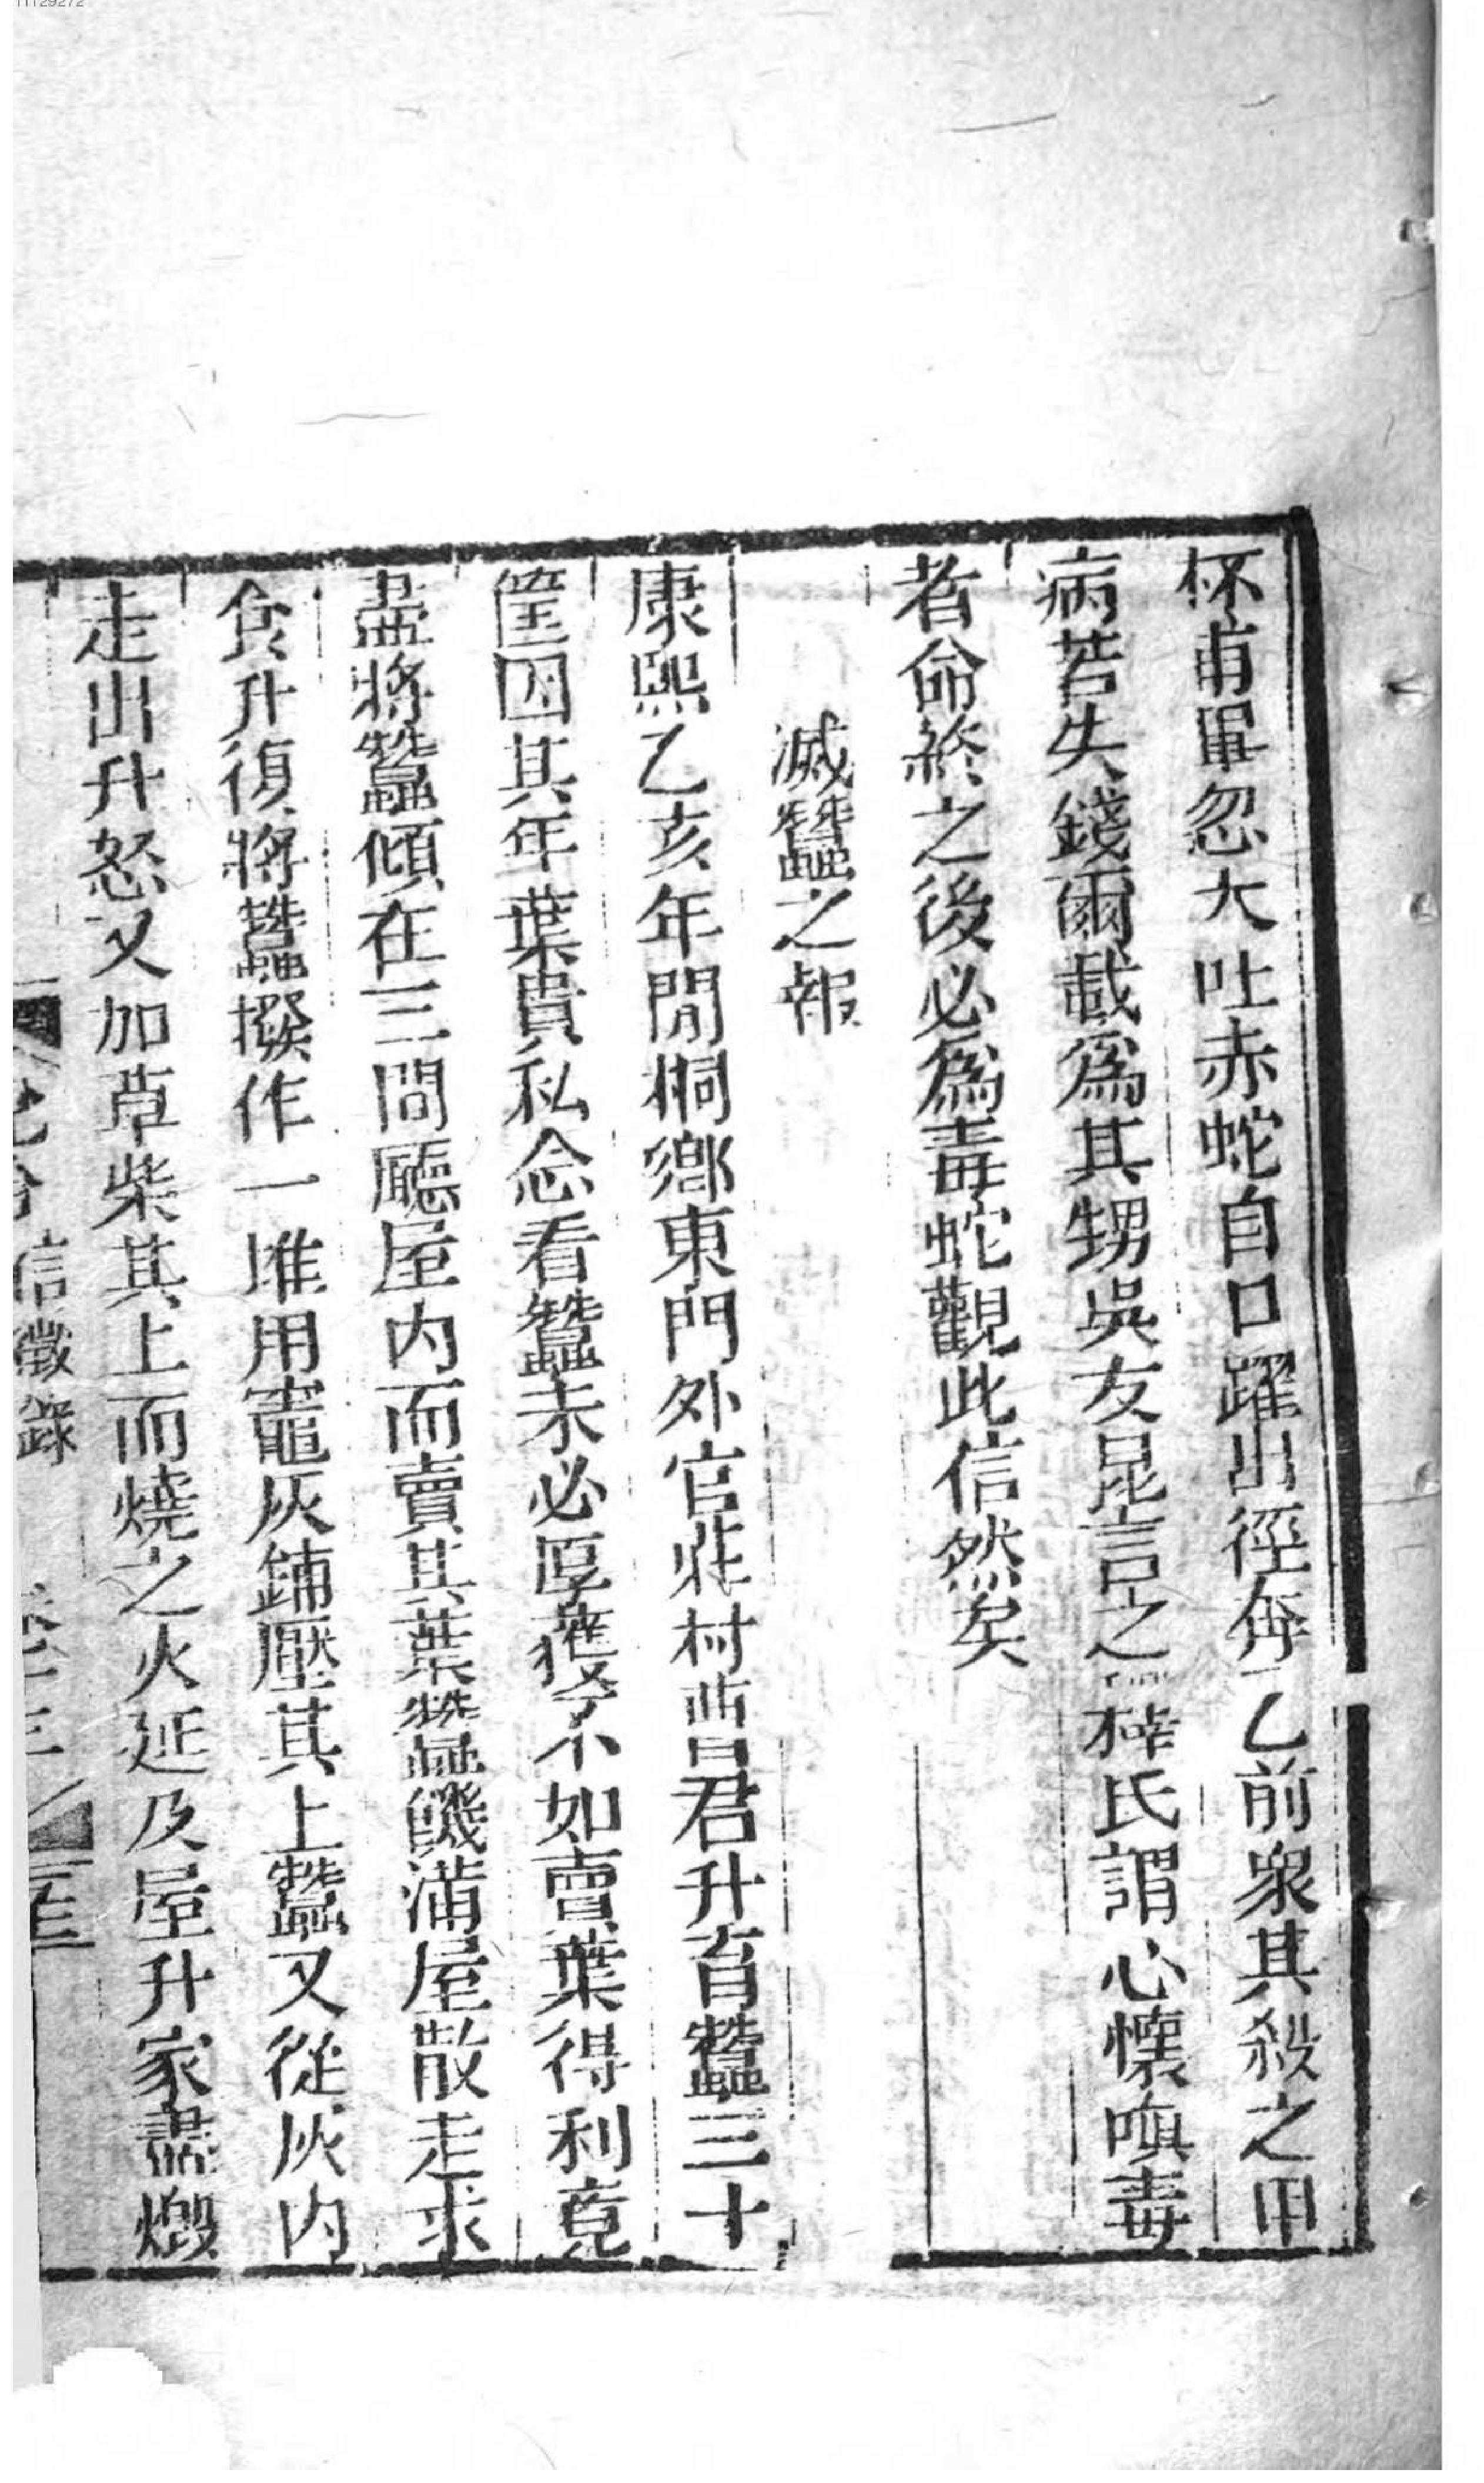 杯甫畢忽大吐赤蛇自口躍出徑奔乙前衆共殺之甲
病若失錢爾載為其甥吳友昆言之釋氏謂心懷嗔毒
者命終之後必為毒蛇觀此信然矣
滅蠶之報
康熙乙亥年閒桐鄉東門外官莊村曹君升育蠶三十
筐因其年葉貴私念看蠶未必厚獲不如賣葉得利竟
盡將蠶傾在三間廳屋内而賣其葉蠶饑滿屋散走求
食升復將蠶撥作一堆用竈灰鋪壓其上蠶又從灰内
走出升怒又加草柴其上而燒之火延及屋升家盡燬
信徵錄
11129272